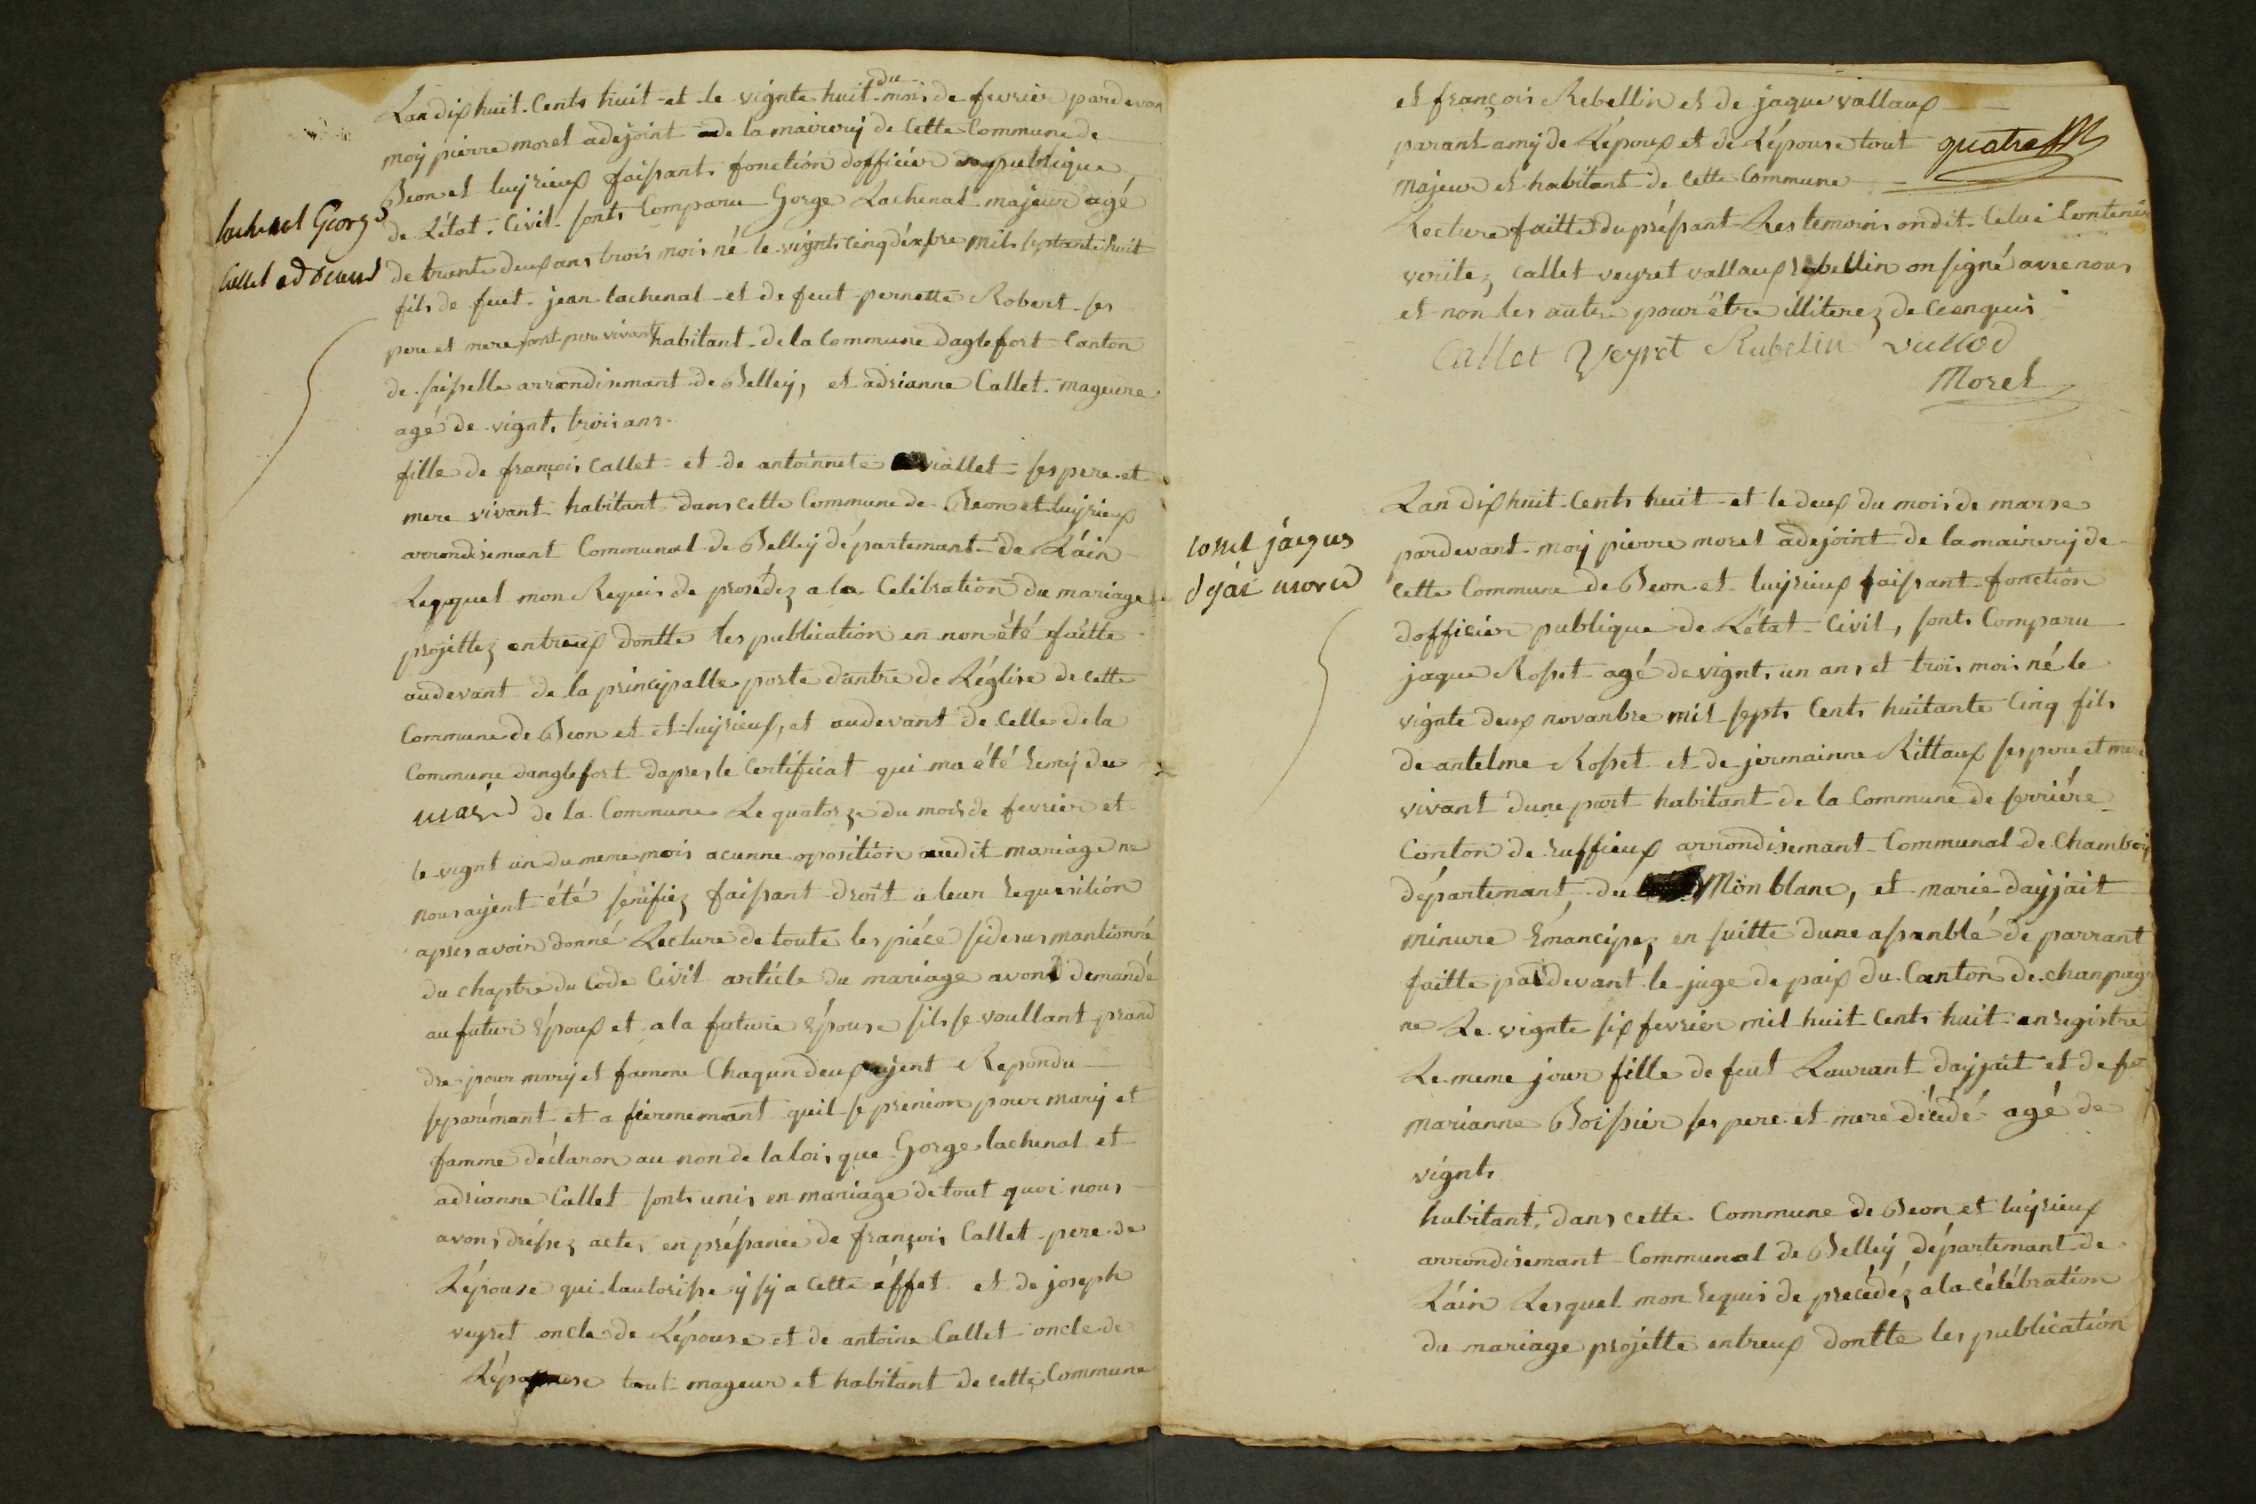 Lan dix huit. Cents huit et le vignte huit du mois de fevrier pardevan
moy pierre morel adejoint de la mairerij de Cette Commune de
Beon et luyrieux faissant fonction dofficier publique
de Létat. Civil. sonts Comparu Gorge Lachenal majeur agé
de trante deux ans trois mois né le vignts cinq déxbre mils septante huit
fils de feut jean lachenal et de feut pernette Robert ses
pere et mere habitant de la Commune daglefort Canton
de seisselle arrondisemant de Belleÿ, et adrianne Callet. mageure
agé de vignt, trois ans.
fille de françois Callet et de antoinnete viallet ses pere et
mere vivant habitant dans cette Commune de Beon et luyrieux
arrondisemant Communal de Belleÿ département de Láin
Lequel mon Requis de prosédez a la Celebration du mariage
projettez entreux dontte les publication en non été faitte
audevant de la principalle porte dantre de Réglise de cette
Commune de Beon et et luyrieux, et audevant de Celle de la
Commune danglefort dapres le Certificat qui ma été Remij du
maire de la Commune Le quatorze du mois de fevrier et
le vignt un du meme mois acunne oposition audit mariage ne
nous ayent été senifiez faissant droit a leur Requisition
apres avoir donné Lecture de toute les piéce sidesus mantionné
du chaptre du Code Civil article du mariage avont demandé
au futur Époux et a la future Épouse sils se voullant prand
dre pour marij et famme Chaqun deux ayent Repondu
separémant et a fiermemant quil se prenion pour marij et
famme déclaron au non de la loi, que Gorge lachenal et
adrianne Callet sonts unis en mariage de tout quoi nous
avons dréssez acte, en préssance de françois Callet pere de
Lépouse qui lautorisse ÿ sÿ a cette éffet et de joseph
veyret oncle de Lépouse et de antoine Callet oncle de
Lépouse tout mageur et habitant de cette Commune
lachenal Georgs
Callet
et françois Rebellin et de jaque vallaux
parant amij de Lépoux et de Lépouse tout quatre
majeur et habitant de Cette Commune
Lecture faitte du préssant Les temoins ondit Celui Contenir
verite, Callet veyret vallaux Rebellin on signé avec nous
et non les autre pour être illiterez de ceenquis
Callet Veyret Rubelin vallod
Morel
Lan dix huit Cents huit et le deux du mois de marse
pardevant moij pierre morel adejoint de la mairerij de
Cette Commune de Beon et luyrieux faissant fonction
dofficier publique de Létat Civil, sonts Comparu
jaque Rosset agé de vignt, un ans et trois mois né le
vignte deux novanbre mil septs Cents huitante Cinq fils
de antelme Rosset et de jermainne Rittaux ses pere et mere
vivant dune part habitant de la Commune de serriére
Conton de Ruffieux arrondisemant Communal de Chamberÿ
départemant, du Mon blanc, et marie dayjait
minure Émancipez en suitte dune assanblé de parrant
faitte pardevant le juge de paix du Canton de chanpag
ne Le vignte six fevrier mil huit Cents huit enregistre
Le meme jour fille de feut Laurant dayjait et de fe
marianne Boissier ses pere et mere décédé agé de
vignts
habitant, dans cette Commune de Beon et luyrieux
arrondisemant Communal de Belleÿ départemant de
Láin Lesquel mon requis de precédéz a la célébration
du mariage projette entreux dontte les publication
Rosset jáeques